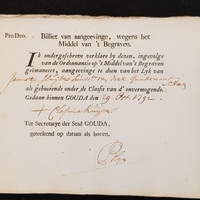 Pro Deo. Billiet van aangeevinge, wegens het
Middel van 't Begraven.
IK ondergeschreve verklare by deezen, ingevolge
van de Ordonnantie op 't Middel van 't Begraven
geëmaneert, aangeevinge te doen van het Lyk van
als gehoorende onder de Classis van d' onvermogende.
Gedaan binnen GOUDA den 29 Oct. 1792
Ter Secretarye der Stad GOUDA,
geteekend op datum als boven.